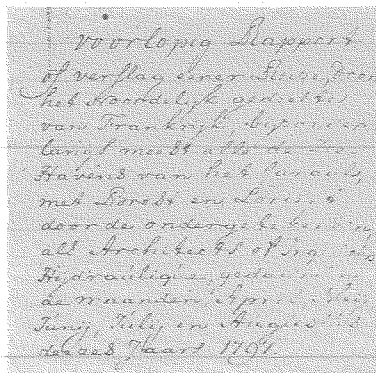 voorlopig Rapport
of verslag eener
het Noordelijk gedeelte
van Frankrijk,
langst meest alle de
Havens van het Canaal,
met Borest en Lorient
door de ondergetekenden
als Architects of
Hydraulique gedaan in
de maanden April Meij
Junij Julij en Augustus
deezes Jaars 1791